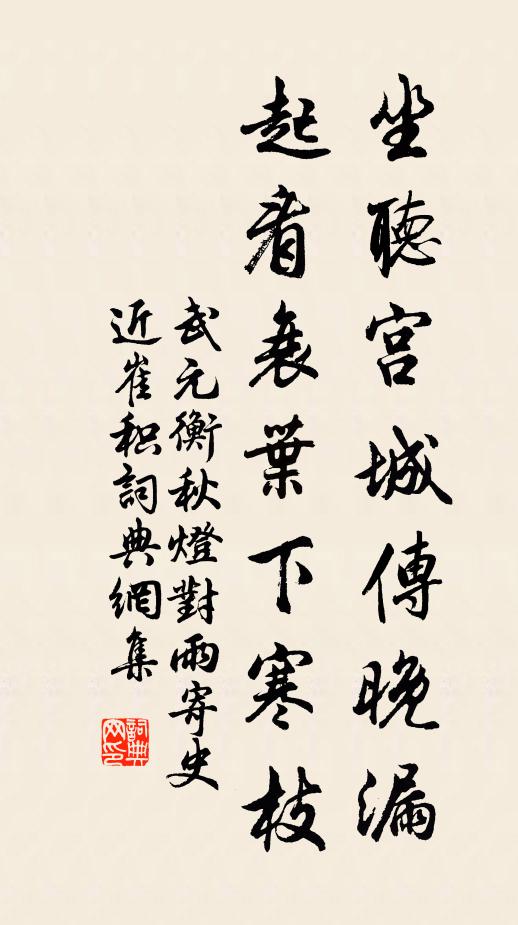 坐聽宮城傳晚漏
起看衰葉下寒枝
武元衡秋燈對雨寄史
近崔积詞典網集
詞典网印